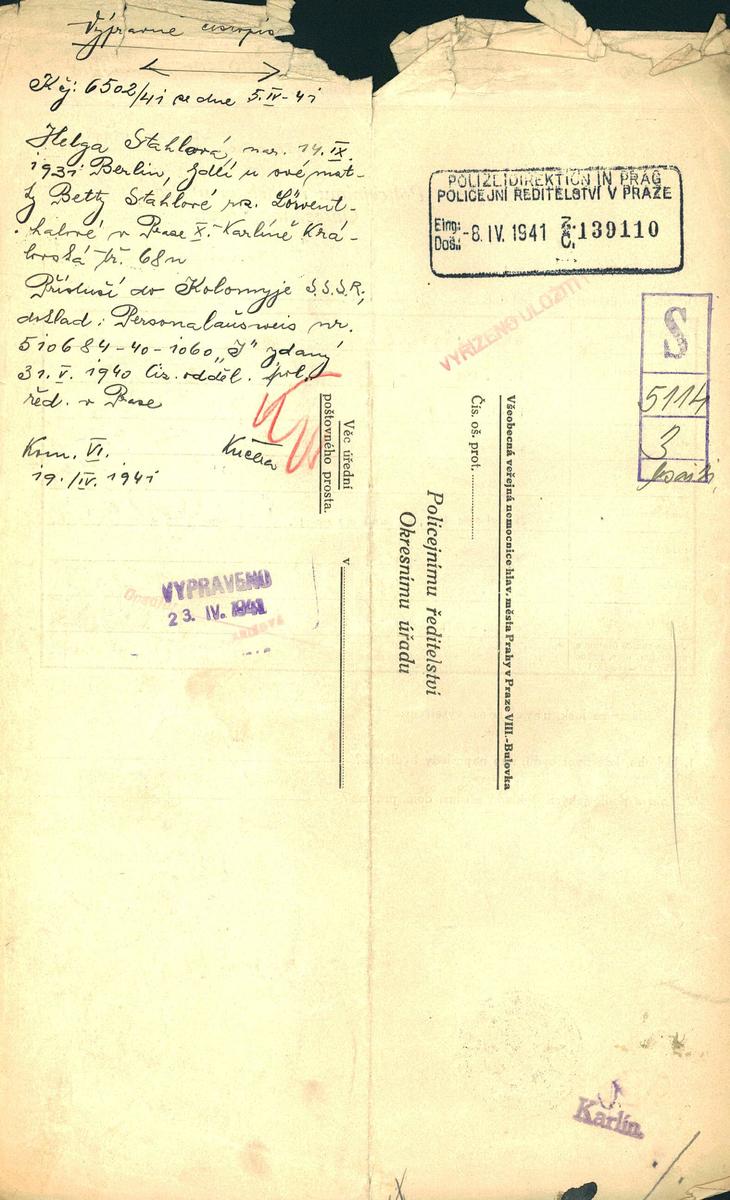 Výpravně čistopis
K čj: 6502/41 ze dne 5.IV-41
Helga Stahlová, nar. 14.IX.
1931 Berlin, bydlí u své mat-
ky Betty Stahlové roz. Löwent-
halové v Praze X.-Karlíně Krá-
lovská tř. 68n
Přísluší do Kolomyje S.S.S.R.,
doklad: Personalausweis nr.
510684-40-1060 „J" vydaný
31. V. 1940 ciz. odděl. pol.
řed. v Praze
Kom. VI.
19./IV. 1941
Kučka
Věc úřední
poštovného prosta.
v
VYPRAVENO
23. IV. 1941
POLIZEIDIREKTION IN PRAG
POLICEJNÍ ŘEDITELSTVÍ V PRAZE
Eing:
Došl:
-8. IV. 1941
Z.
Č. 139110
VYŘÍZENO ULOŽITI
S
5114
3
Všeobecná veřejná nemocnice hlav. města Prahy v Praze VIII.-Bulovka
Čís. oš. prot.
Policejnímu ředitelství
Okresnímu úřadu
J.
Karlín.